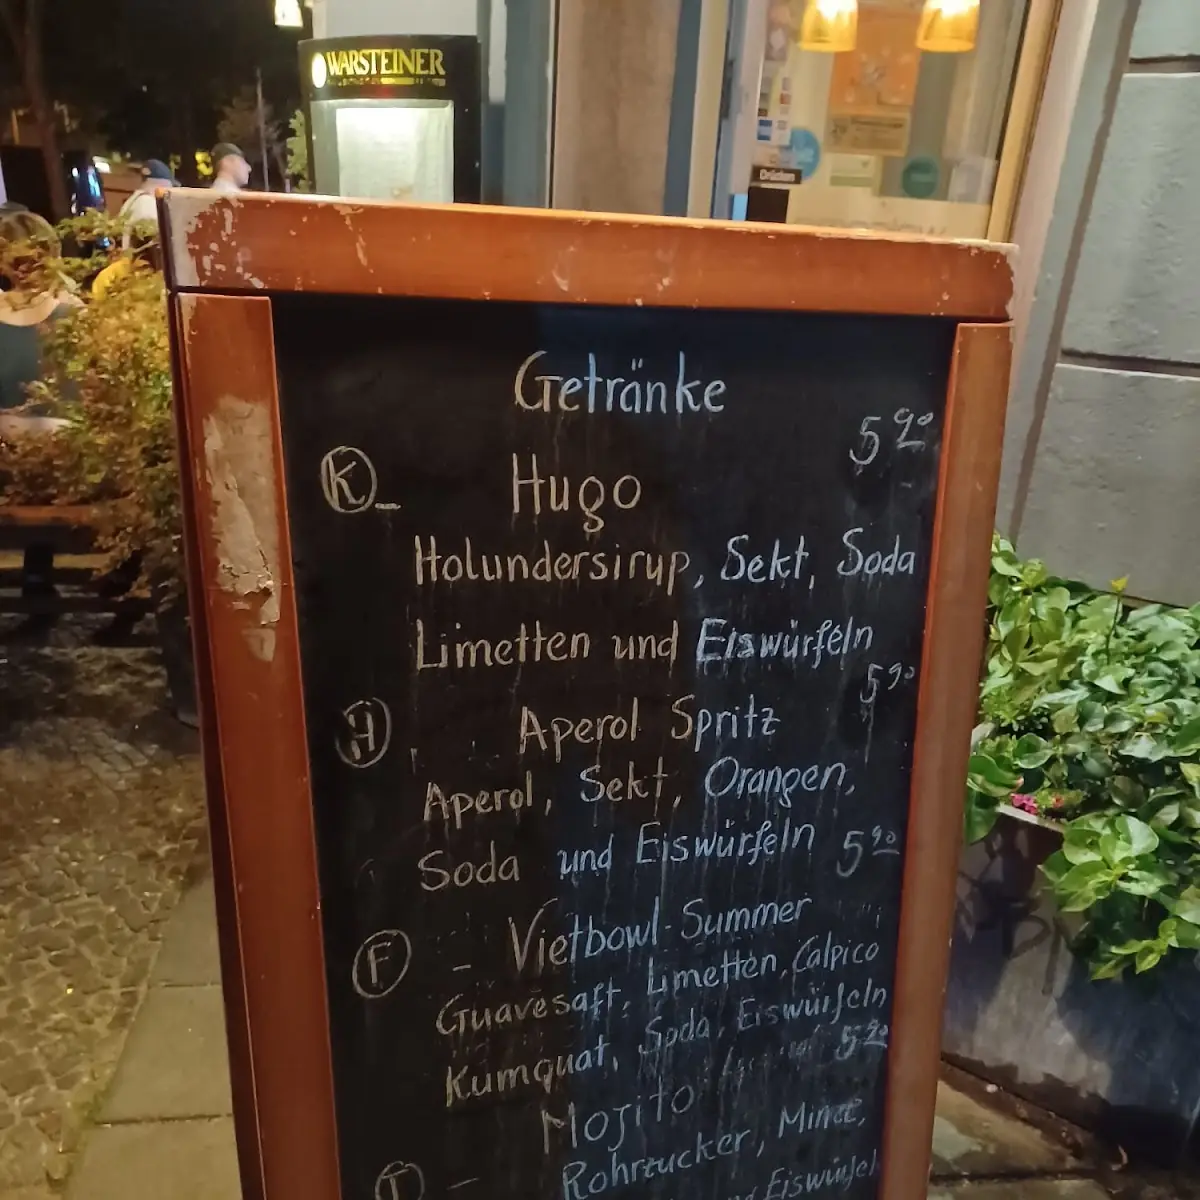 WARSTEINER
Drücken
Getränke
5 90
K Hugo
Holundersirup, Sekt, Soda
Limetten und Eiswürfeln
5 90
H Aperol Spritz
Aperol, Sekt, Orangen,
Soda und Eiswürfeln 5 90
F - Vietbowl-Summer
Guavesaft, Limetten, Calpico
Kumquat, Soda, Eiswürfeln
5 90
Mojito
- Rohrzucker, Minze,
Eiswürfel